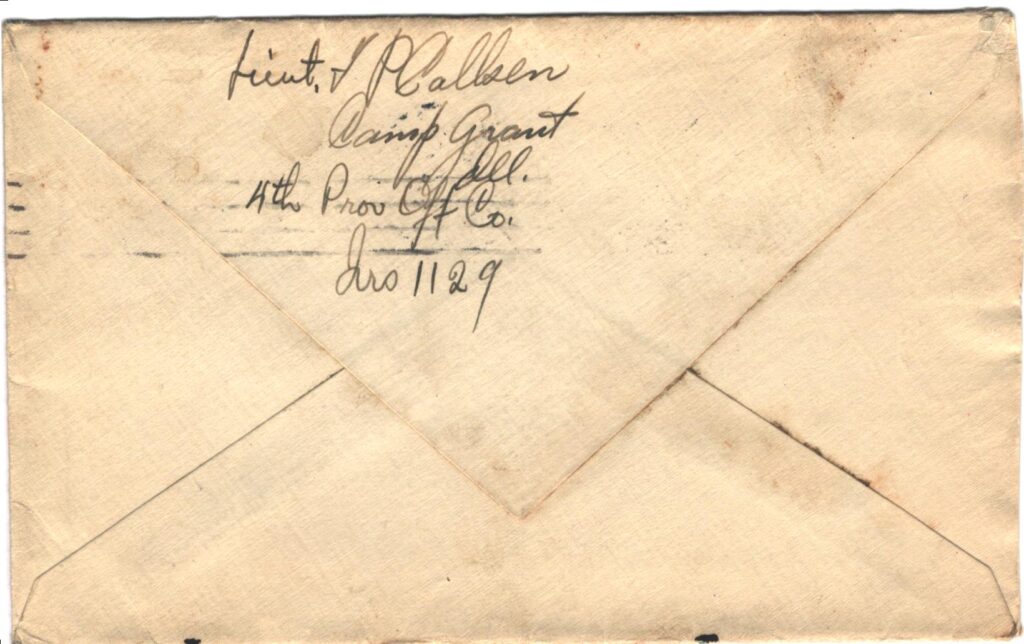 Lieut. J P Callsen
Camp Grant
Ill.
4th Prov Off Co.
Brs 1129